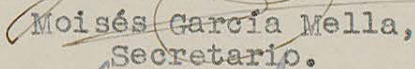 Moisés García Mella,
Secretario.